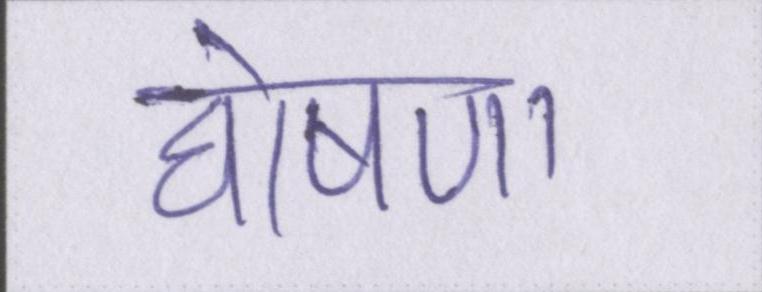 घोषणा